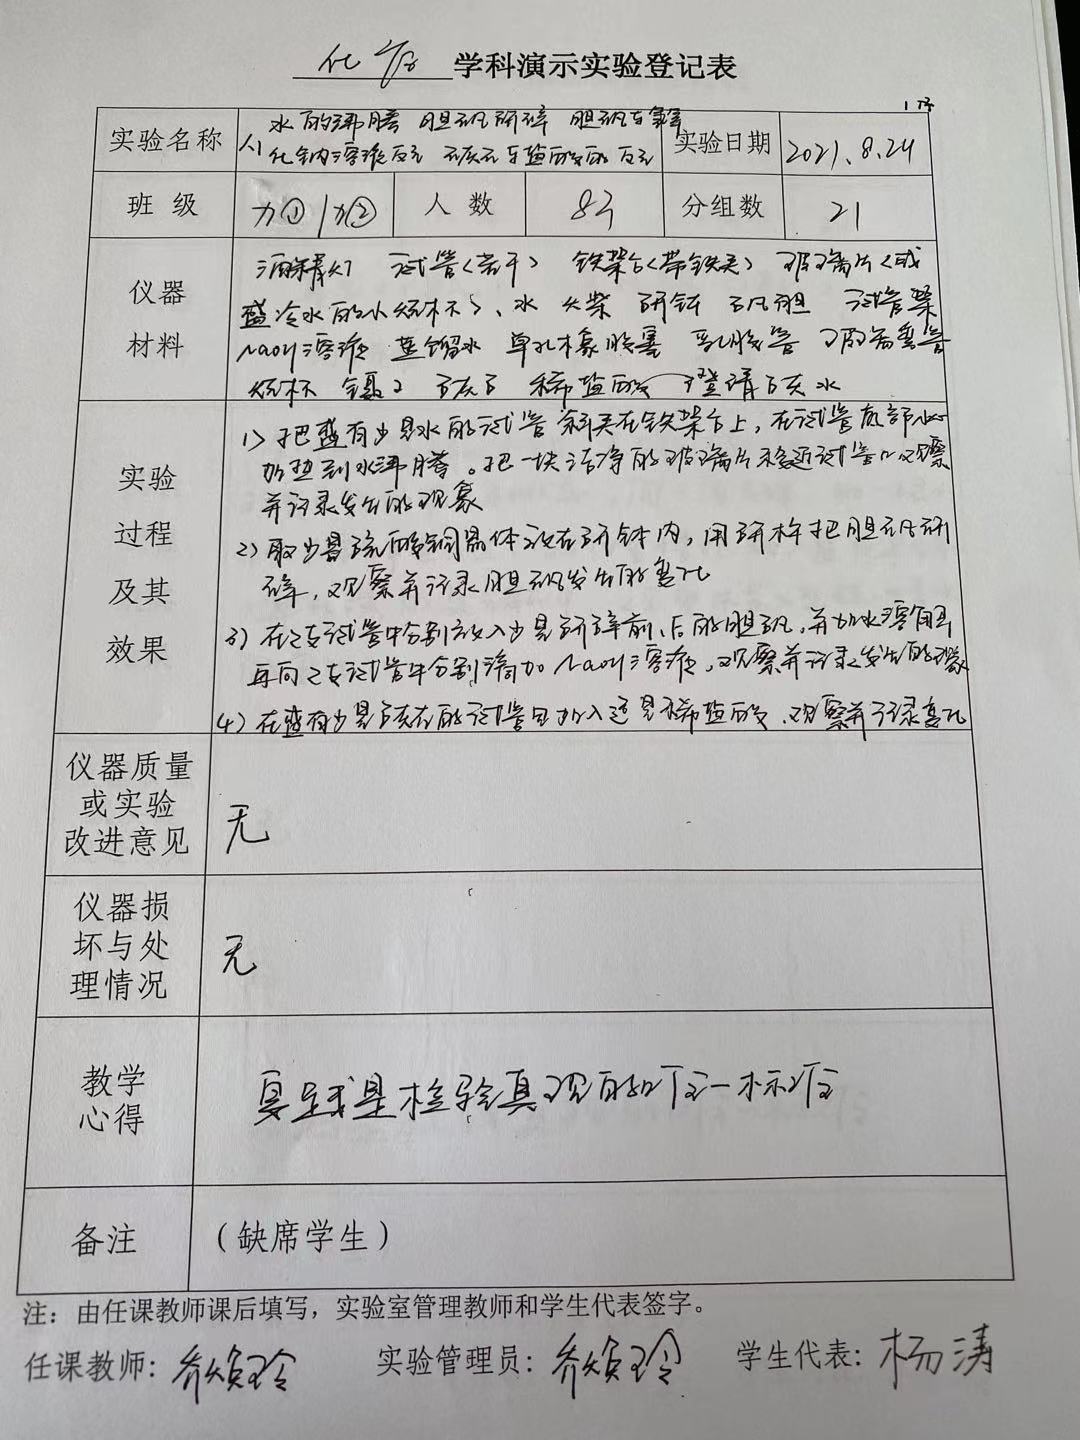 化学 学科演示实验登记表
实验名称 水的沸腾 胆矾研碎 胆矾与氢氧化钠溶液反应 石灰石与盐酸的反应 实验日期 2021.8.24
班级 九① 九② 人数 83 分组数 21
仪器材料
酒精灯 试管(若干) 铁架台(带铁夹) 玻璃片(或
盛冷水的小烧杯)、水 火柴 研钵 矾胆 试管架
NaOH溶液 蒸馏水 单孔橡胶塞 乳胶管 玻璃弯管
烧杯 镊子 石灰石 稀盐酸 澄清石灰水
实验过程及其效果
1) 把盛有少量水的试管斜夹在铁架台上,在试管底部小心
加热到水沸腾。把一块洁净的玻璃片移近试管口观察
并记录发生的现象
2) 取少量硫酸铜晶体放在研钵内,用研杵把胆矾研
碎,观察并记录胆矾发生的变化
3) 在2支试管中分别放入少量研碎前、后的胆矾,并加水溶解
再向2支试管中分别滴加NaOH溶液,观察并记录发生的现象
4) 在盛有少量石灰石的试管里加入适量稀盐酸,观察并记录变化
仪器质量
或实验
改进意见
无
仪器损
坏与处
理情况
无
教学
心得
实践是检验真理的唯一标准
备注 (缺席学生)
注:由任课教师课后填写,实验室管理教师和学生代表签字。
任课教师: 实验管理员: 学生代表:杨涛